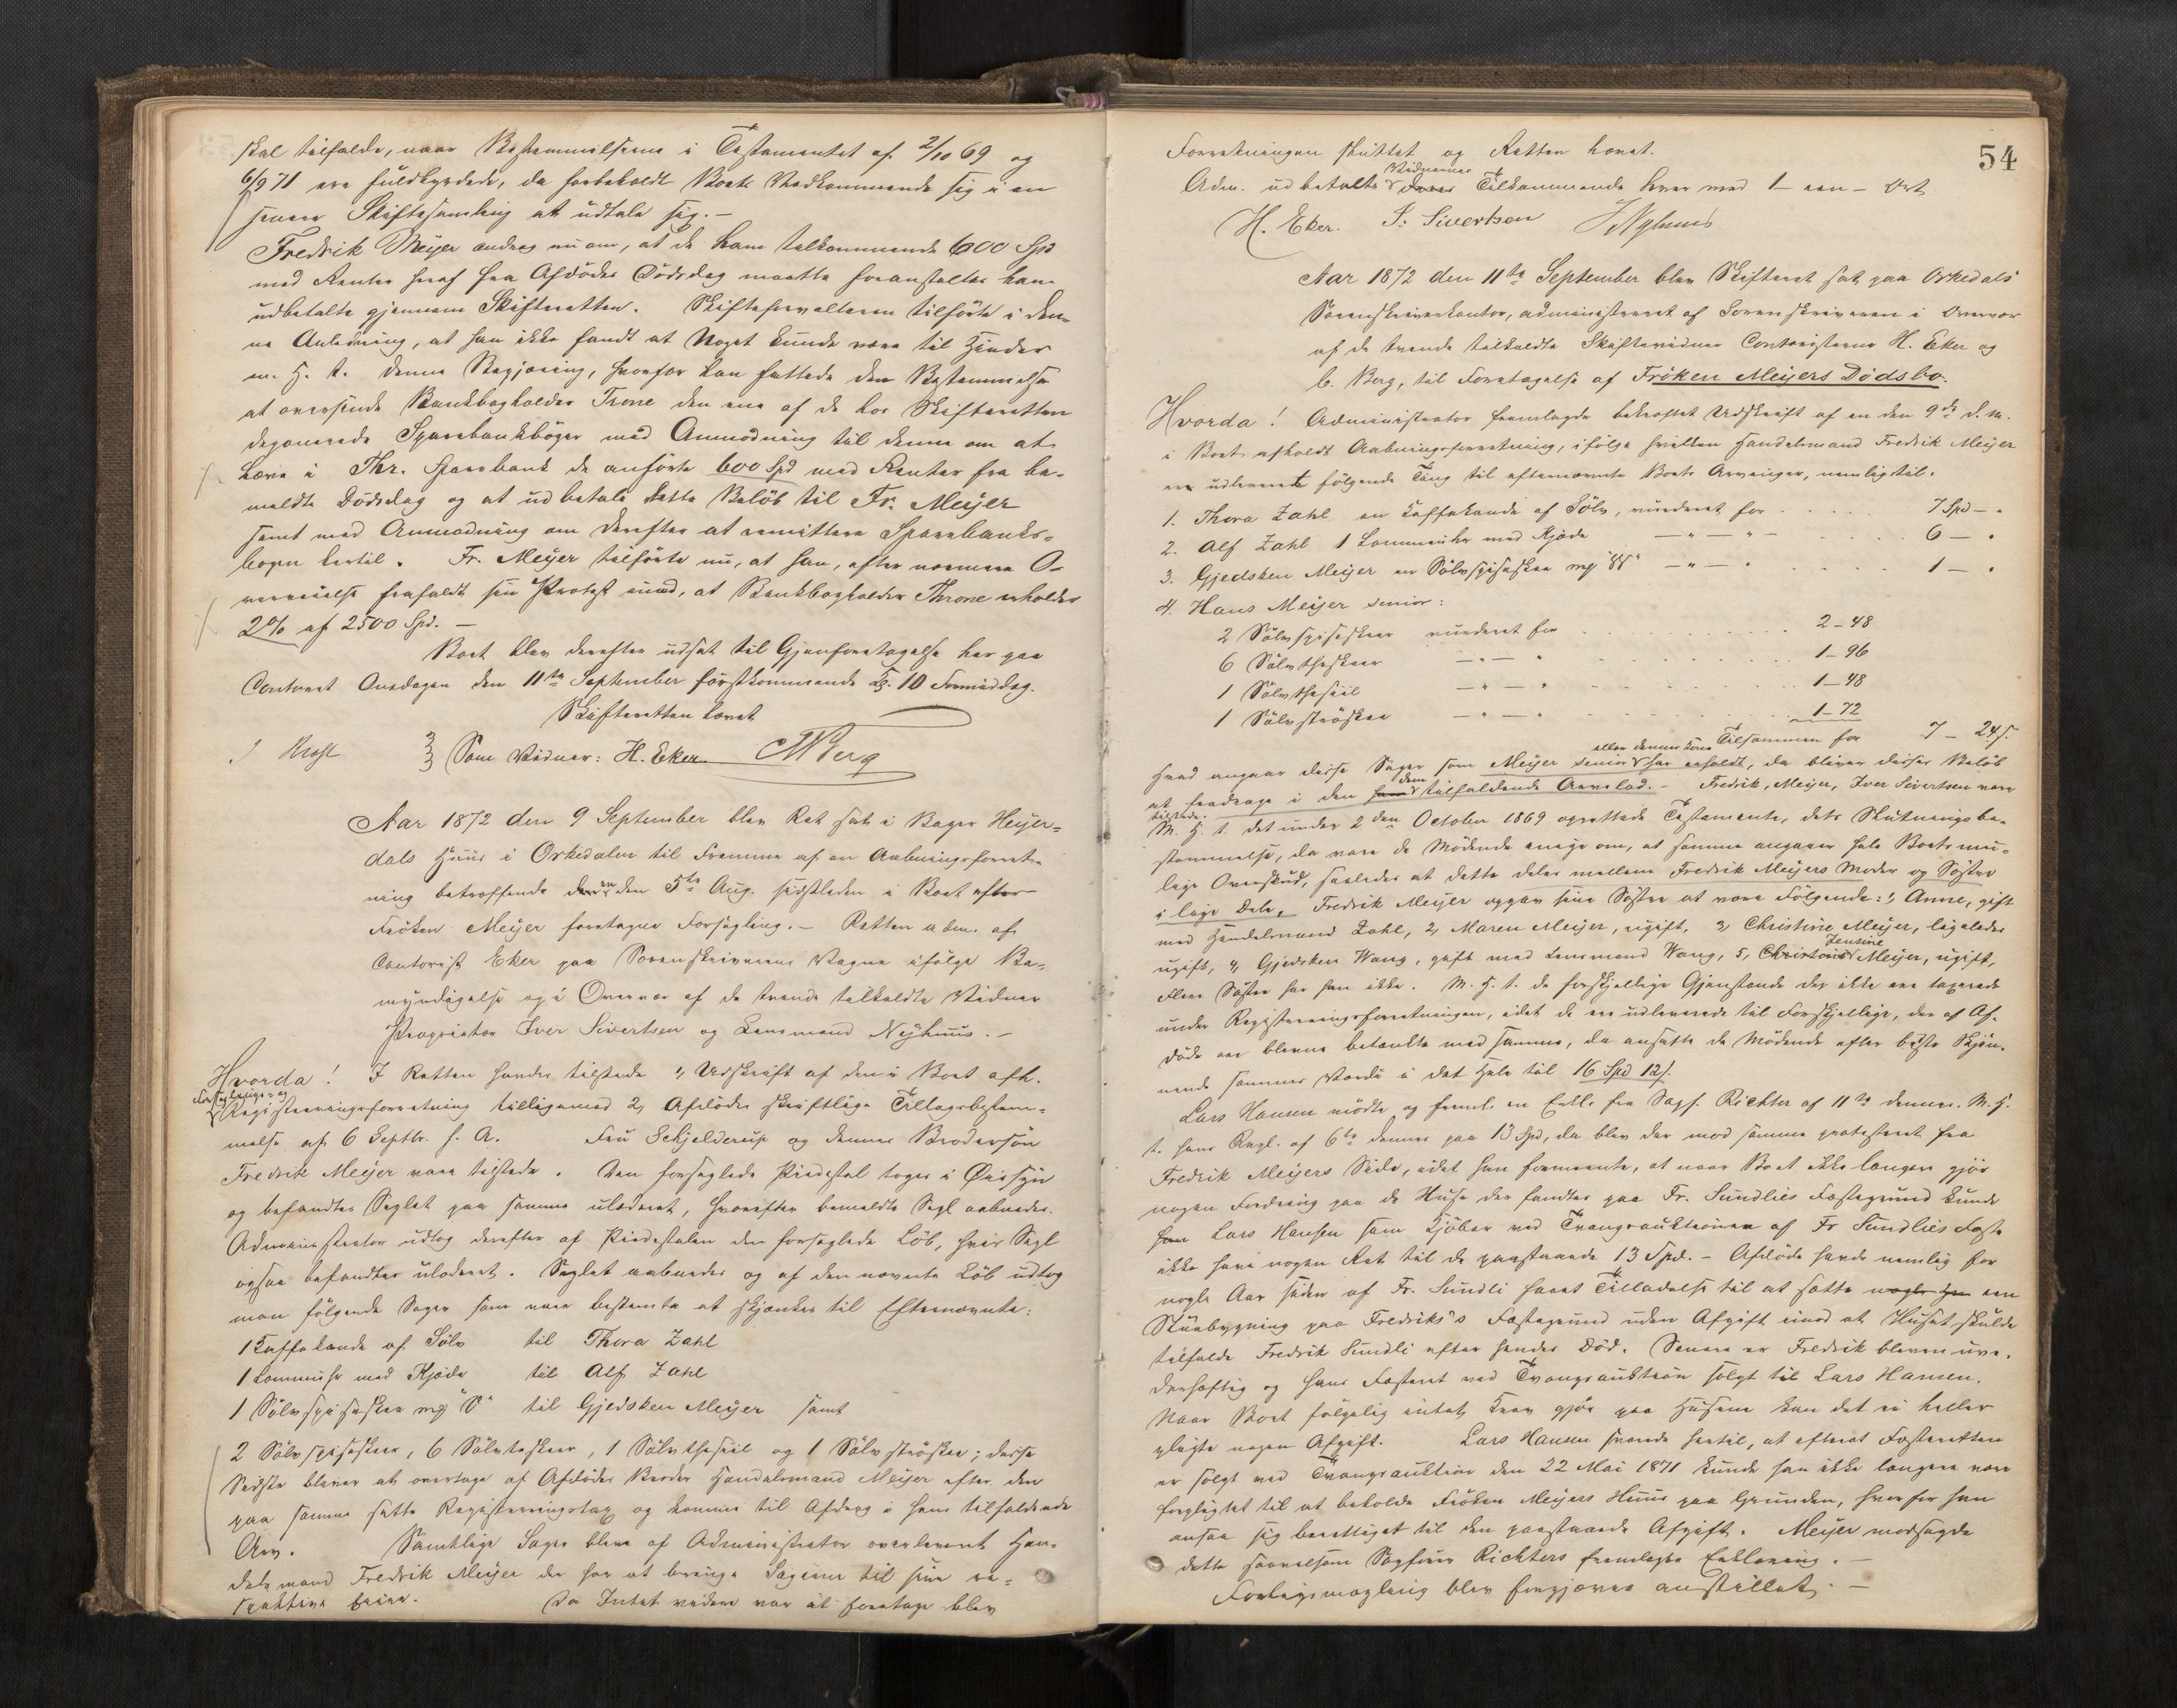 skal tilfalde, naar Bestemmelserne i Testamentet af 2/10 69 og
6/9 71 ere fuldbyrdede, da forbeholdt Boets Vedkommende sig i en
senere Skiftesamling at udtale sig. –
Fredrik Meijer androg nu om, at de ham tilkommende 600 Spd
med Renter heraf fra Afdødes Dødsdag maatte foranstaltes ham
udbetalte gjennem Skifteretten. Skifteforvalteren tilførte i den-
ne Anledning, at han ikke fandt at Noget kunde være til Hinder
m. H. t. denne Begjæring, hvorfor han fattede den Bestemmelse
at oversende Bankbogholder Trone den ene af de hos Skifteretten
deponerede Sparebankbøger med Anmodning til denne om at
hæve i Thr. Sparebank de anførte 600 Spd med Renter fra be-
meldte Dødsdag og at udbetale dette Beløb til Fr. Meijer
samt med Anmodning om derefter at remittere Sparebanks-
bogen hertil. Fr. Meijer tilførte nu, at han, efter nærmere O-
verveielse frafaldt sin Protest imod, at Bankbogholder Throne erholder
2% af 2500 Spd. –
Boet blev derefter udsat til Gjenforetagelse her paa
Contoret Onsdagen den 11te September førstkommende Kl. 10 Formiddag.
Skifteretten hævet
Som Vidner: H. Eker. Berg
Aar 1872 den 9 September blev Ret sat i Bager Heijer-
dals Huus i Orkedalen til Fremme af en Aabningsforret-
ning betræffende den den 5te Aug. sidstleden i Boet efter
Frøken Meijer foretagne Forsegling. – Retten adm. af
Contorist Eker paa Sorenskriverens Vegne ifølge Be-
myndigelse og i Overvær af de tvende tilkaldte Vidner
Proprietær Iver Sivertsen og Lensmand Nyhuus. –
Hvorda! I Retten havdes tilstede 1, Udskrift af den i Boet afh.
Forseglings- og
Registreringsforretning tilligemed 2, Afdødes skriftlige Tillægsbestem-
melse af 6 Septbr. f. A. Fru Schjelderup og dennes Brodersøn
Fredrik Meijer vare tilstede. Den forseglede Piedestal toges i Øiesyn
og befandtes Seglet paa samme ulæderet, hvorefter bemeldte Segl aabnedes.
Administrator udtog derefter af Piedestalen den forseglede Løb, hvis Segl
ogsaa befandtes ulæderet. Seglet aabnedes og af den nævnte Løb udtog
man følgende Sager som vare bestemte at skjænkes til Efternævnte:
1 Kaffekande af Sølv til Thora Zahl
1 Lommeuhr med Kjæde til Alf Zahl
1 Sølvspiseskee mg til Gjedsken Meijer samt
2 Sølvspiseskeer, 6 Sølvteskeer, 1 Sølvthesiil og 1 Sølvstrøskee; disse
Sidste bliver at overtage af Afdødes Broder Handelsmand Meijer efter den
paa samme satte Registreringstax og komme til Afdrag i hans tilfaldende
Arv. Samtlige Sager bleve af Administrator overleveret Han-
delsmand Fredrik Meijer der har at bringe Sagerne til sine re-
spektive Eiere. Da Intet videre var at foretage blev
54
Forretningen sluttet og Retten hævet.
Vidnernes
Adm. udbetalte Tilkommende hver med 1 – een – Ort
H. Eker. I. Sivertsen Nyhuus
Aar 1872 den 11te September blev Skifteret sat paa Orkedals
Sorenskriverkontor, administreret af Sorenskriveren i Overvær
af de tvende tilkaldte Skiftevidner Contoristerne H. Eker og
C. Berg, til Foretagelse af Frøken Meijers Dødsbo.
Hvorda! Administrator fremlagde bekræftet Udskrift af en den 9de d. M.
i Boet afholdt Aabningsforretning, ifølge hvilken Handelsmand Fredrik Meijer
er udleveret følgende Ting til efternævnte Boets Arvinger, nemlig til.
1. Thora Zahl en Kaffekande af Sølv, vurderet for . . . 7 Spd – "
2. Alf Zahl 1 Lommeuhr med Kjæde – " – " – . . . 6 – "
3. Gjedsken Meijer en Sølvspiseskee mg – " – " . . . 1 – "
4. Hans Meijer senior:
2 Sølvspiseskeer vurderet for . . . 2 – 48
6 Sølvtheskeer – " – " . . . 1 – 96
1 Sølvthesiil – " – " . . . 1 – 48
1 Sølvstrøskee – " – " . . . 1 – 72
Tilsammen for 7 – 24 s.
eller dennes Søns
Hvad angaar disse Sager som Meijer senior har erholdt, da bliver disses Beløb
dem
at fradrage i den ham tilfaldende Arvelod. – Fredrik, Meijer, Iver Sivertsen vare
tilstede.
M. H. t. det under 2den October 1869 oprettede Testamente, dets Slutningsbe-
stemmelse, da vare de Mødende enige om, at samme angaaer hele Boets mu-
lige Overskud, saaledes at dette deles mellem Fredrik Meijers Moder og Søstre
i lige Dele. Fredrik Meijer opgav sine Søstre at være Følgende: 1, Anne, gift
med Handelsmand Zahl, 2, Maren Meijer, ugift, 3, Christine Meijer, ligeledes
Jensine
ugift, 4, Gjedsken Wang, gift med Lensmand Wang, 5, Meijer, ugift,
flere Søstre har han ikke. M. H. t. de forskjellige Gjenstande der ikke ere taxerede
under Registreringsforretningen, idet de ere udleverede til Forskjellige, der af Af-
døde ere blevne betænkte med samme, da ansatte de Mødende efter bedste Skjøn-
nende sammes Værdi i det Hele til 16 Spd 12 s.
Lars Hansen mødte og freml. en Erkl. fra Sagf. Richter af 11te dennes. M. H.
t. hans Regl. af 6te dennes paa 13 Spd, da blev der mod samme protesteret fra
Fredrik Meijers Side, idet han formeente, at naar Boet ikke længere gjør
nogen Fordring paa de Huse der fandtes paa Fr. Sundlies Fæstegrund kunde
han Lars Hansen som Kjøber ved Tvangsauktionen af Fr Sundlies Fæste
ikke have nogen Ret til de paastaaede 13 Spd. – Afdøde havde nemlig for
nogle Aar siden af Fr. Sundli faaet Tilladelse til at sætte een
Stuebygning paa Fredriks's Fæstegrund uden Afgift imod at Huset skulde
tilfalde Fredrik Sundli efter hendes Død. Senere er Fredrik bleven uve-
derhæftig og hans Fæsteret ved Tvangsauktion solgt til Lars Hansen.
Naar Boet følgelig intet Krav gjør paa Husene kan det ei heller
pligte nogen Afgift. Lars Hansen svarede hertil, at efterat Fæsteretten
er solgt ved Tvangsauktion den 22 Mai 1871 kunde han ikke længere være
forpligtet til at beholde Frøken Meijers Huus paa Grunden, hvorfor han
ansaa sig berettiget til den paastaaede Afgift. Meijer modsagde
dette saavelsom Sagfører Richters fremlagte Erklæring. –
Forligsmægling blev forgjæves anstillet. –